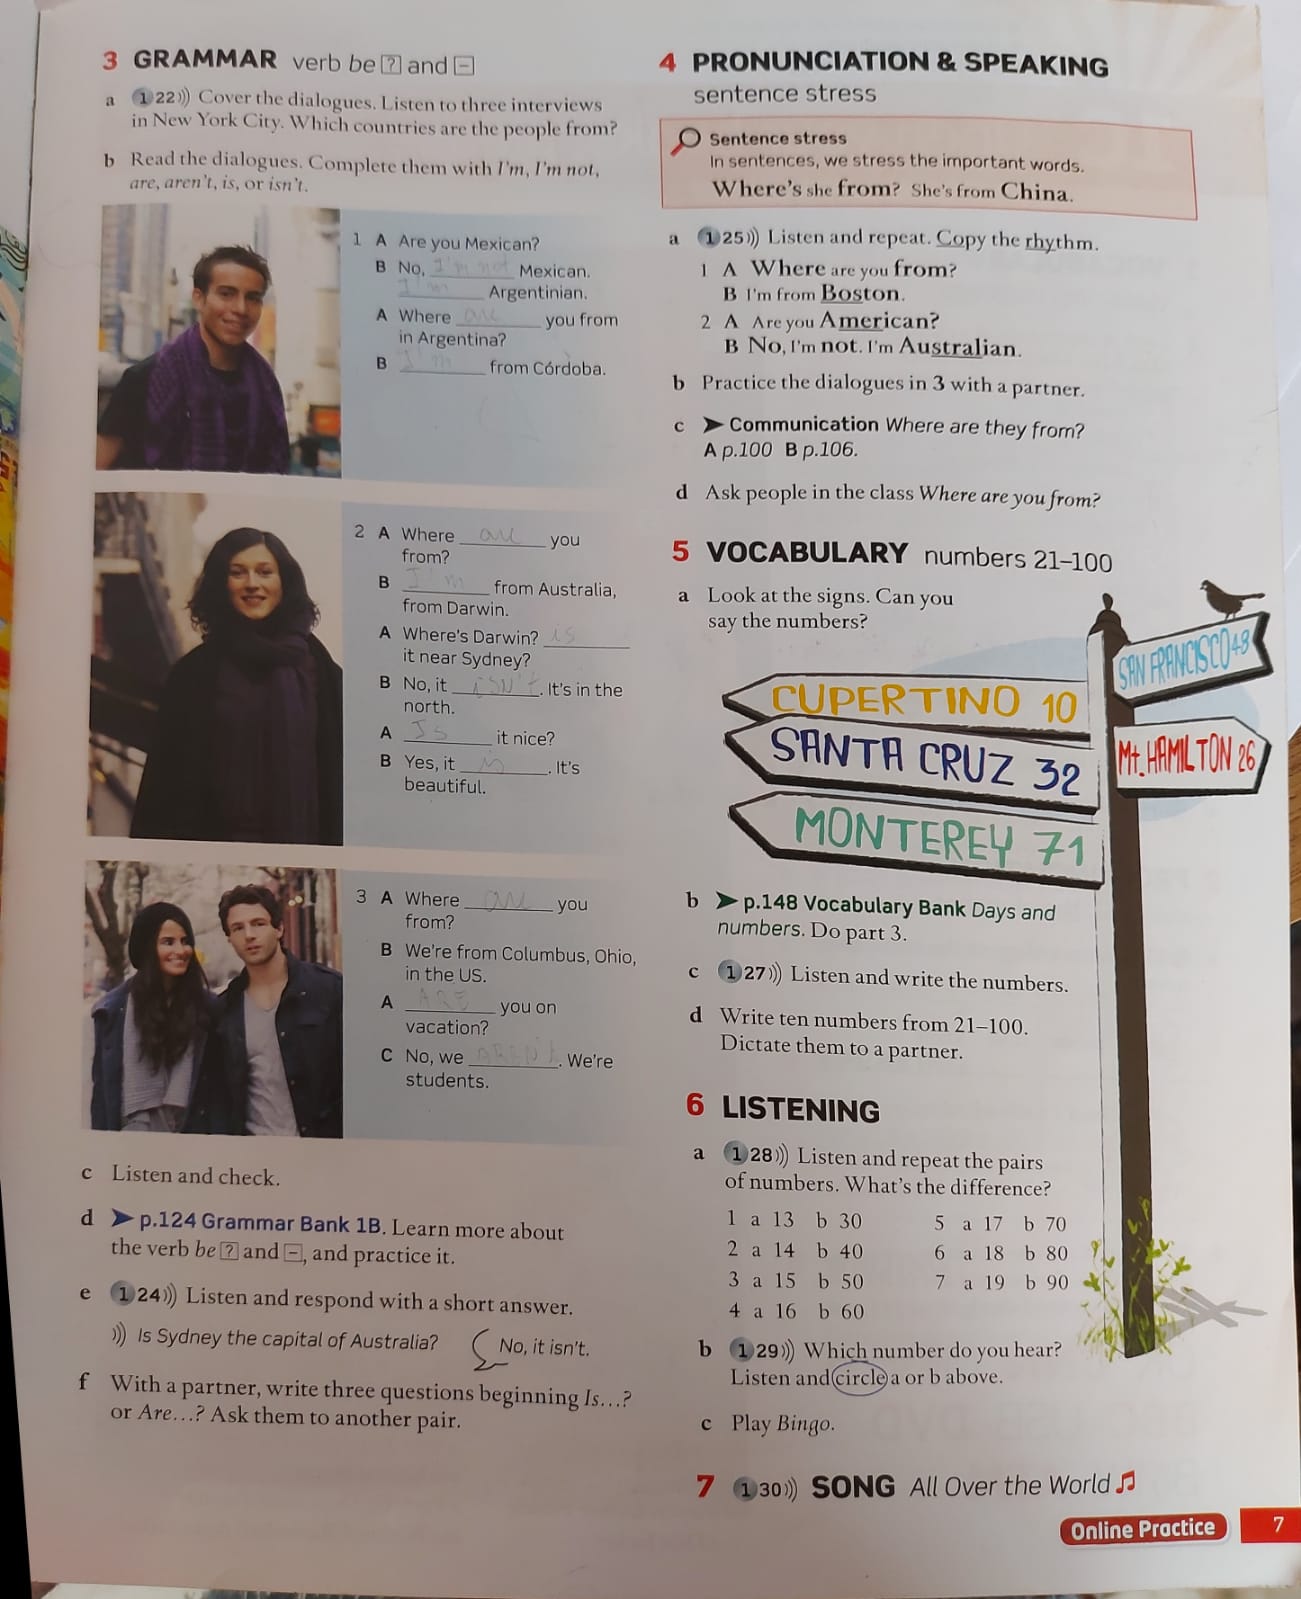 3 GRAMMAR verb be ? and –
a 1 22))) Cover the dialogues. Listen to three interviews
in New York City. Which countries are the people from?
b Read the dialogues. Complete them with I'm, I'm not,
are, aren't, is, or isn't.
1 A Are you Mexican?
B No, I'm not Mexican.
I'm Argentinian.
A Where are you from
in Argentina?
B I'm from Córdoba.
2 A Where are you
from?
B I'm from Australia,
from Darwin.
A Where's Darwin? is
it near Sydney?
B No, it isn't. It's in the
north.
A Is it nice?
B Yes, it is. It's
beautiful.
3 A Where are you
from?
B We're from Columbus, Ohio,
in the US.
A ARE you on
vacation?
C No, we AREN'T. We're
students.
c Listen and check.
d ➤ p.124 Grammar Bank 1B. Learn more about
the verb be ? and –, and practice it.
e 1 24))) Listen and respond with a short answer.
))) Is Sydney the capital of Australia? No, it isn't.
f With a partner, write three questions beginning Is…?
or Are…? Ask them to another pair.
4 PRONUNCIATION & SPEAKING
sentence stress
Sentence stress
In sentences, we stress the important words.
Where's she from? She's from China.
a 1 25))) Listen and repeat. Copy the rhythm.
1 A Where are you from?
B I'm from Boston.
2 A Are you American?
B No, I'm not. I'm Australian.
b Practice the dialogues in 3 with a partner.
c ➤ Communication Where are they from?
A p.100 B p.106.
d Ask people in the class Where are you from?
5 VOCABULARY numbers 21–100
a Look at the signs. Can you
say the numbers?
SAN FRANCISCO 48
CUPERTINO 10
SANTA CRUZ 32
Mt. HAMILTON 26
MONTEREY 71
b ➤ p.148 Vocabulary Bank Days and
numbers. Do part 3.
c 1 27))) Listen and write the numbers.
d Write ten numbers from 21–100.
Dictate them to a partner.
6 LISTENING
a 1 28))) Listen and repeat the pairs
of numbers. What's the difference?
1 a 13 b 30 5 a 17 b 70
2 a 14 b 40 6 a 18 b 80
3 a 15 b 50 7 a 19 b 90
4 a 16 b 60
b 1 29))) Which number do you hear?
Listen and circle a or b above.
c Play Bingo.
7 1 30))) SONG All Over the World ♫
Online Practice 7